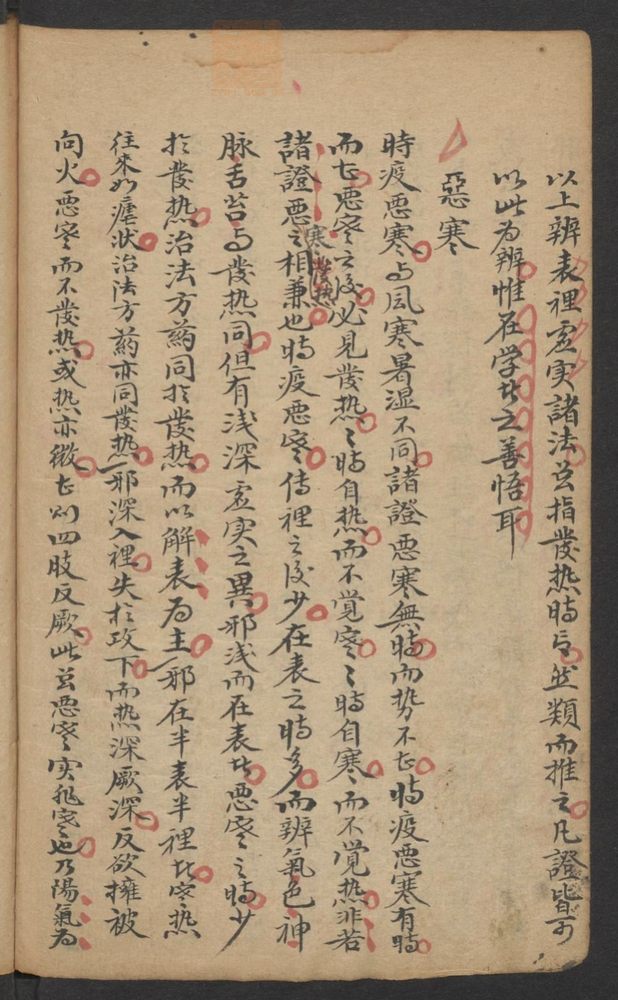 以上辨表裡虛实諸法虽指發热時言然類而推之凡證皆可
以此为辨惟在学者之善悟耳
惡寒
時疫惡寒与風寒暑湿不同諸證惡寒無時而势不甚時疫惡寒有時
而甚惡寒之後必見發热〻時自热而不覚寒〻時自寒而不覚热非若
諸證惡寒發热之相兼也時疫惡寒传裡之後少在表之時多而辨氣色神
脉舌苔与發热同但有浅深虛实之異邪浅而在表者惡寒之時少
扵發热治法方葯同扵發热而以解表为主邪在半表半裡者寒热
往来如瘧状治法方葯亦同發热邪深入裡失扵攻下而热深厥深反欲擁被
向火惡寒而不發热或热亦微甚则四肢反厥此虽惡寒实非寒也乃陽氣为